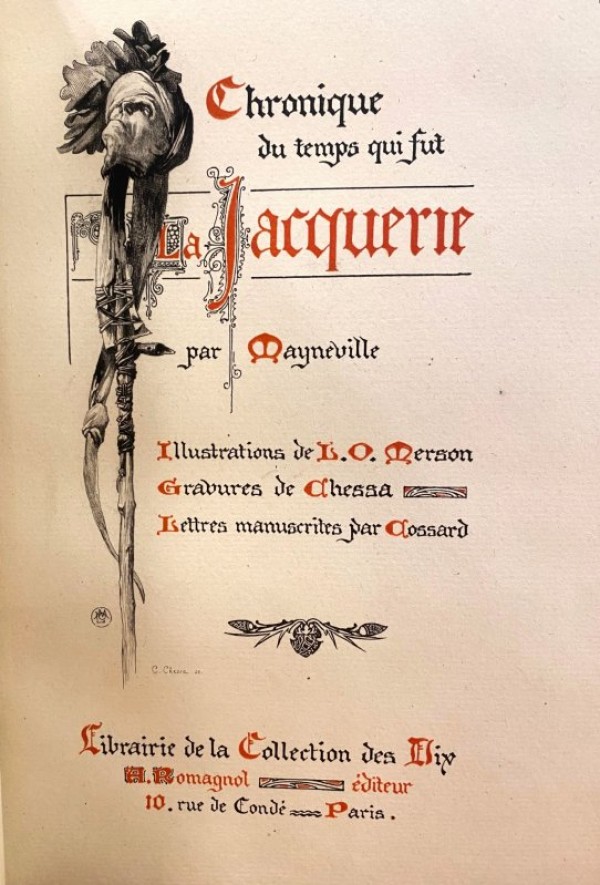 Chronique
du temps qui fut
La Jacquerie
par Mayneville
Illustrations de L. O. Merson
Gravures de Chessa
Lettres manuscrites par Cossard
C. Chessa
Librairie de la Collection des Dix
A. Romagnol éditeur
10. rue de Condé Paris.